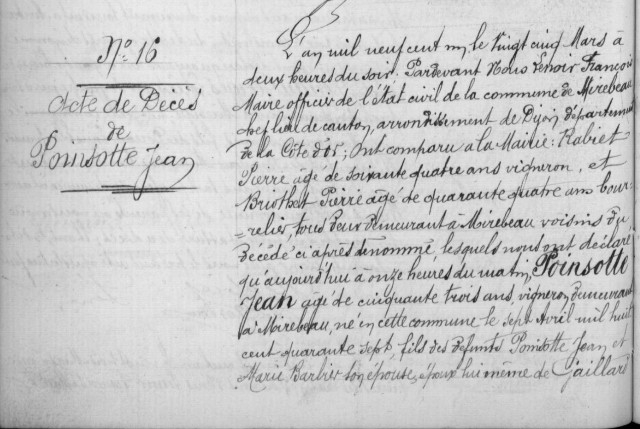 N° 16
Acte de Décès
de
Poinsotte Jean
L'an mil neuf cent un, le vingt cinq Mars à
deux heures du soir. Pardevant Nous Lenoir François
Maire officier de l'état civil de la commune de Mirebeau
chef lieu de canton, arrondissement de Dijon département
de la Côte d'Or; Ont comparu à la Mairie: Rabiet
Pierre âgé de soixante quatre ans vigneron, et
Briottet Pierre âgé de quarante quatre ans bour-
=relier, tous deux demeurant à Mirebeau voisins du
décédé ci après dénommé, lesquels nous ont déclaré
qu'aujourd'hui à onze heures du matin, Poinsotte
Jean âgé de cinquante trois ans, vigneron demeurant
à Mirebeau, né en cette commune le sept Avril mil huit
cent quarante sept, fils des défunts Poinsotte Jean et
Marie Barbier son épouse, époux lui même de Gaillard